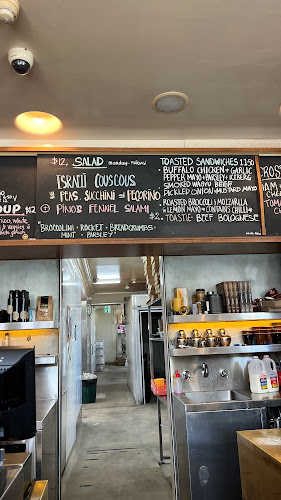 $12, SALAD
ISRAELI COUSCOUS
W PEAS, ZUCCHINI and PECORINO
+ PINO'S FENNEL SALAMI $2.
BROCCOLINI · ROCKET · BREADCRUMBS ·
MINT · PARSLEY
TOASTED SANDWICHES 11.50
· BUFFALO CHICKEN + GARLIC
PEPPER MAYO + PARSLEY + ICEBERG
SMOKED WAGYU BEEF
PICKLED ONION + MUSTARD MAYO
· ROASTED BROCCOLI & MOZZARELLA
W LEMON MAYO * CONTAINS CHILLI *
· TOASTIE · BEEF BOLOGNESE
OUP $12